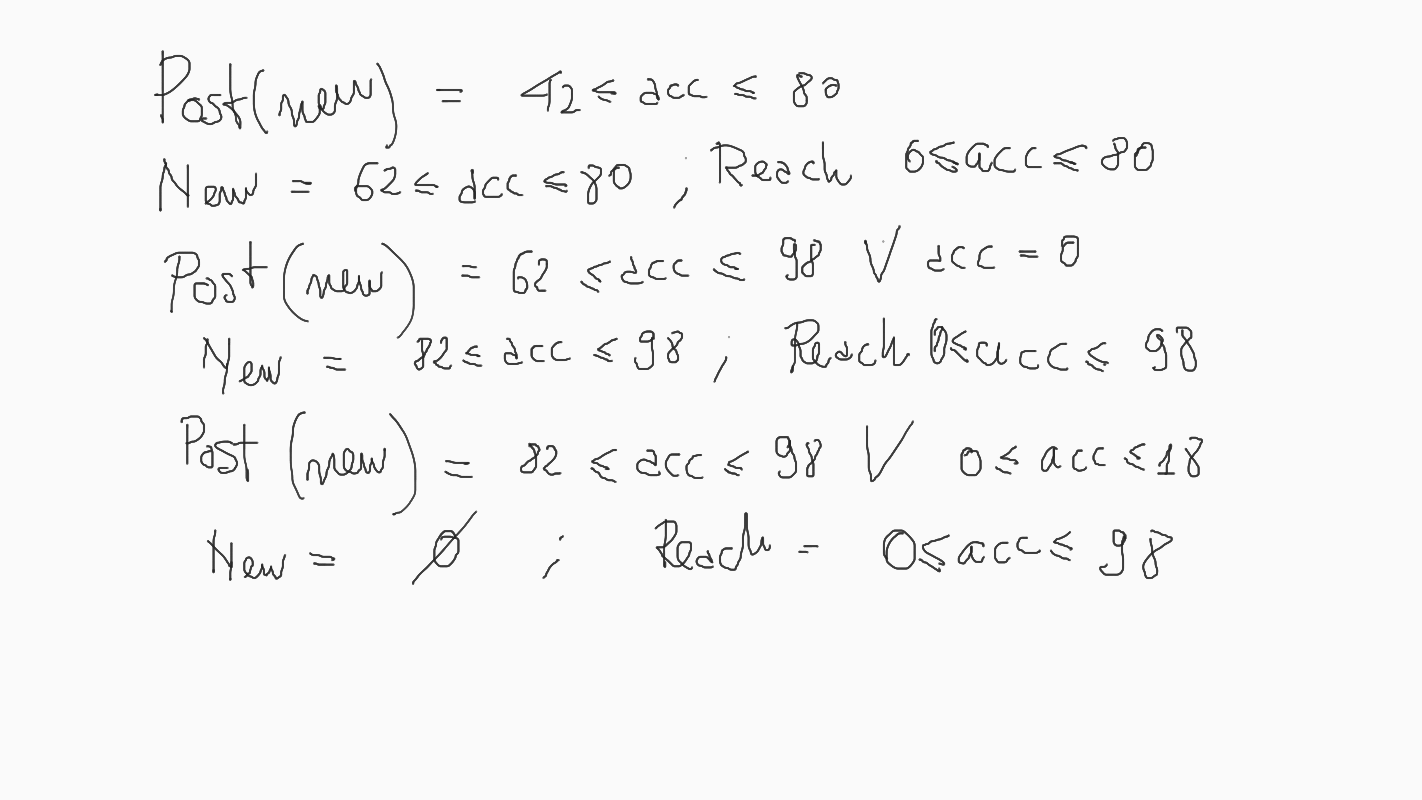 Post(new) = 42 ≤ acc ≤ 80
New = 62 ≤ acc ≤ 80 , Reach 0 ≤ acc ≤ 80
Post(new) = 62 ≤ acc ≤ 98 ∨ acc = 0
New = 82 ≤ acc ≤ 98 ; Reach 0 ≤ acc ≤ 98
Post(new) = 82 ≤ acc ≤ 98 ∨ 0 ≤ acc ≤ 18
New = ∅ ; Reach = 0 ≤ acc ≤ 98